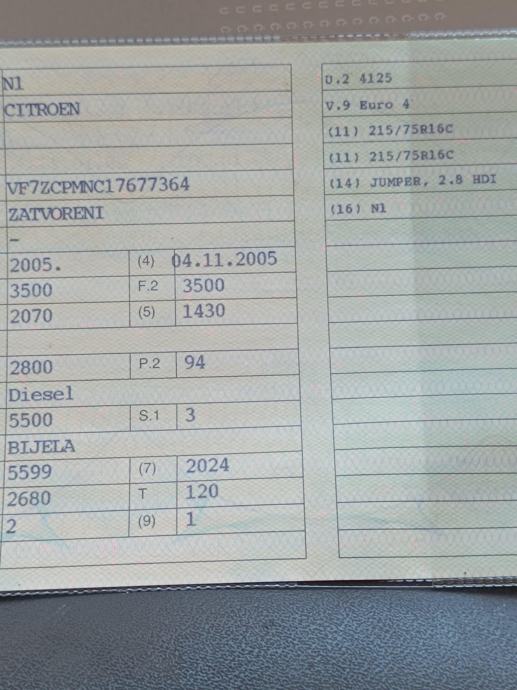 N1
CITROEN
VF7ZCPMNC17677364
ZATVORENI
–
2005. (4) 04.11.2005
3500 F.2 3500
2070 (5) 1430
2800 P.2 94
Diesel
5500 S.1 3
BIJELA
5599 (7) 2024
2680 T 120
2 (9) 1
U.2 4125
V.9 Euro 4
(11) 215/75R16C
(11) 215/75R16C
(14) JUMPER, 2.8 HDI
(16) N1